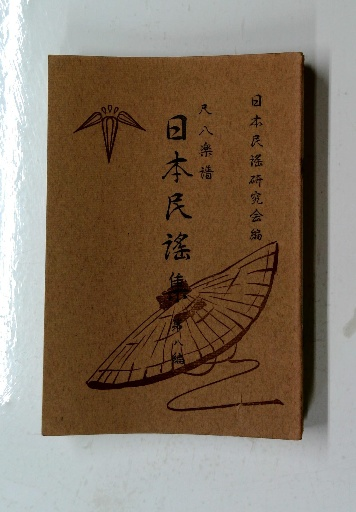 日本民謡研究会編
尺八楽譜
日本民謡集 第八編